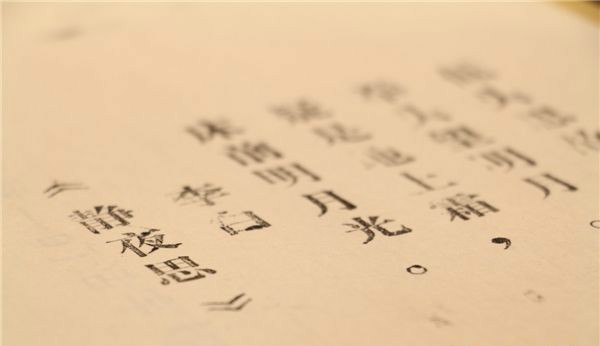 《静夜思》
李白
床前明月光。
疑是地上霜，
举头望明月。
低头思故